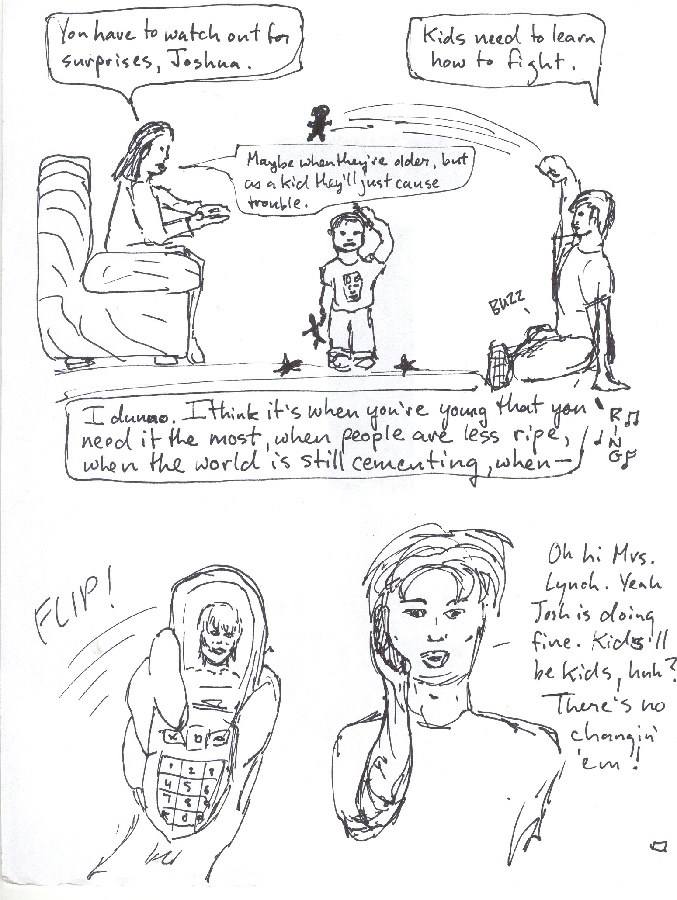 You have to watch out for
surprises, Joshua.
Kids need to learn
how to fight.
Maybe when they're older, but
as a kid they'll just cause
trouble.
BUZZ
I dunno. I think it's when you're young that you
need it the most, when people are less ripe,
when the world is still cementing, when—
RING
FLIP!
1 2 3
4 5 6
7 8 9
* 0 #
Oh hi Mrs.
Lynch. Yeah
Josh is doing
fine. Kids'll
be kids, huh?
There's no
changin'
'em!